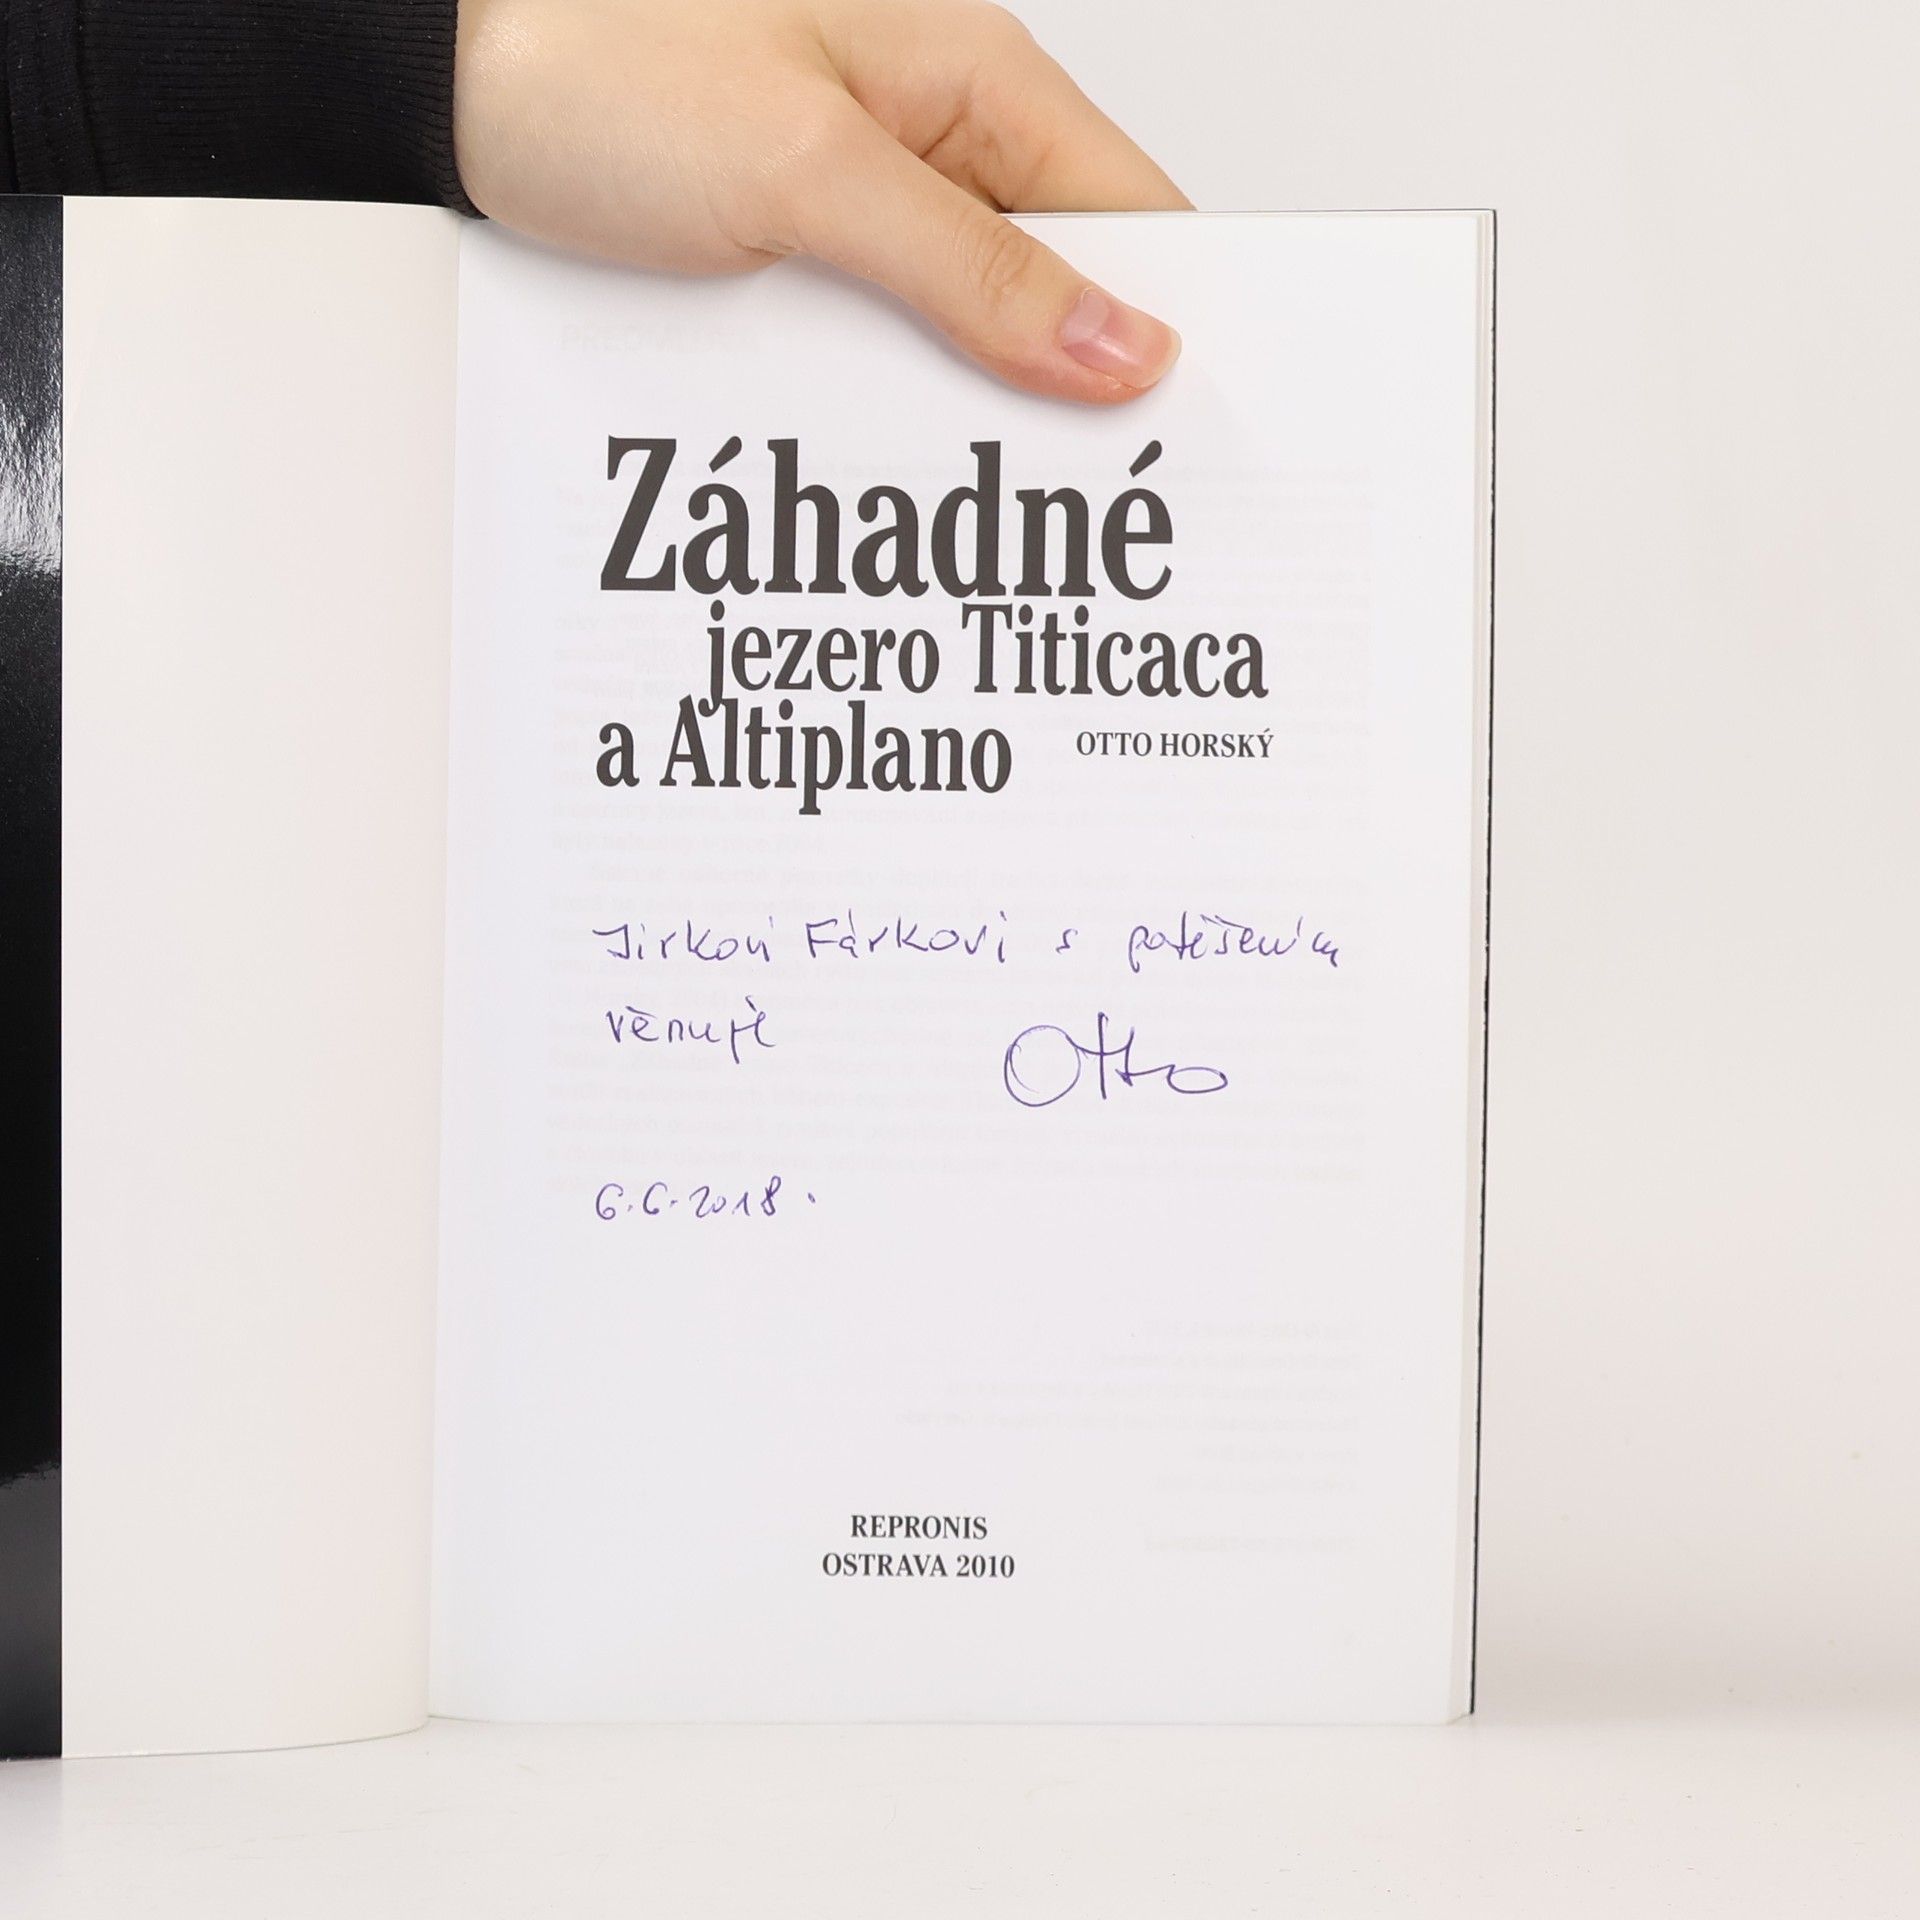 Záhadné
jezero Titicaca
a Altiplano
OTTO HORSKÝ
Jirkovi Fárkovi s potěšením
věnuje Otto
6.6.2018.
REPRONIS
OSTRAVA 2010